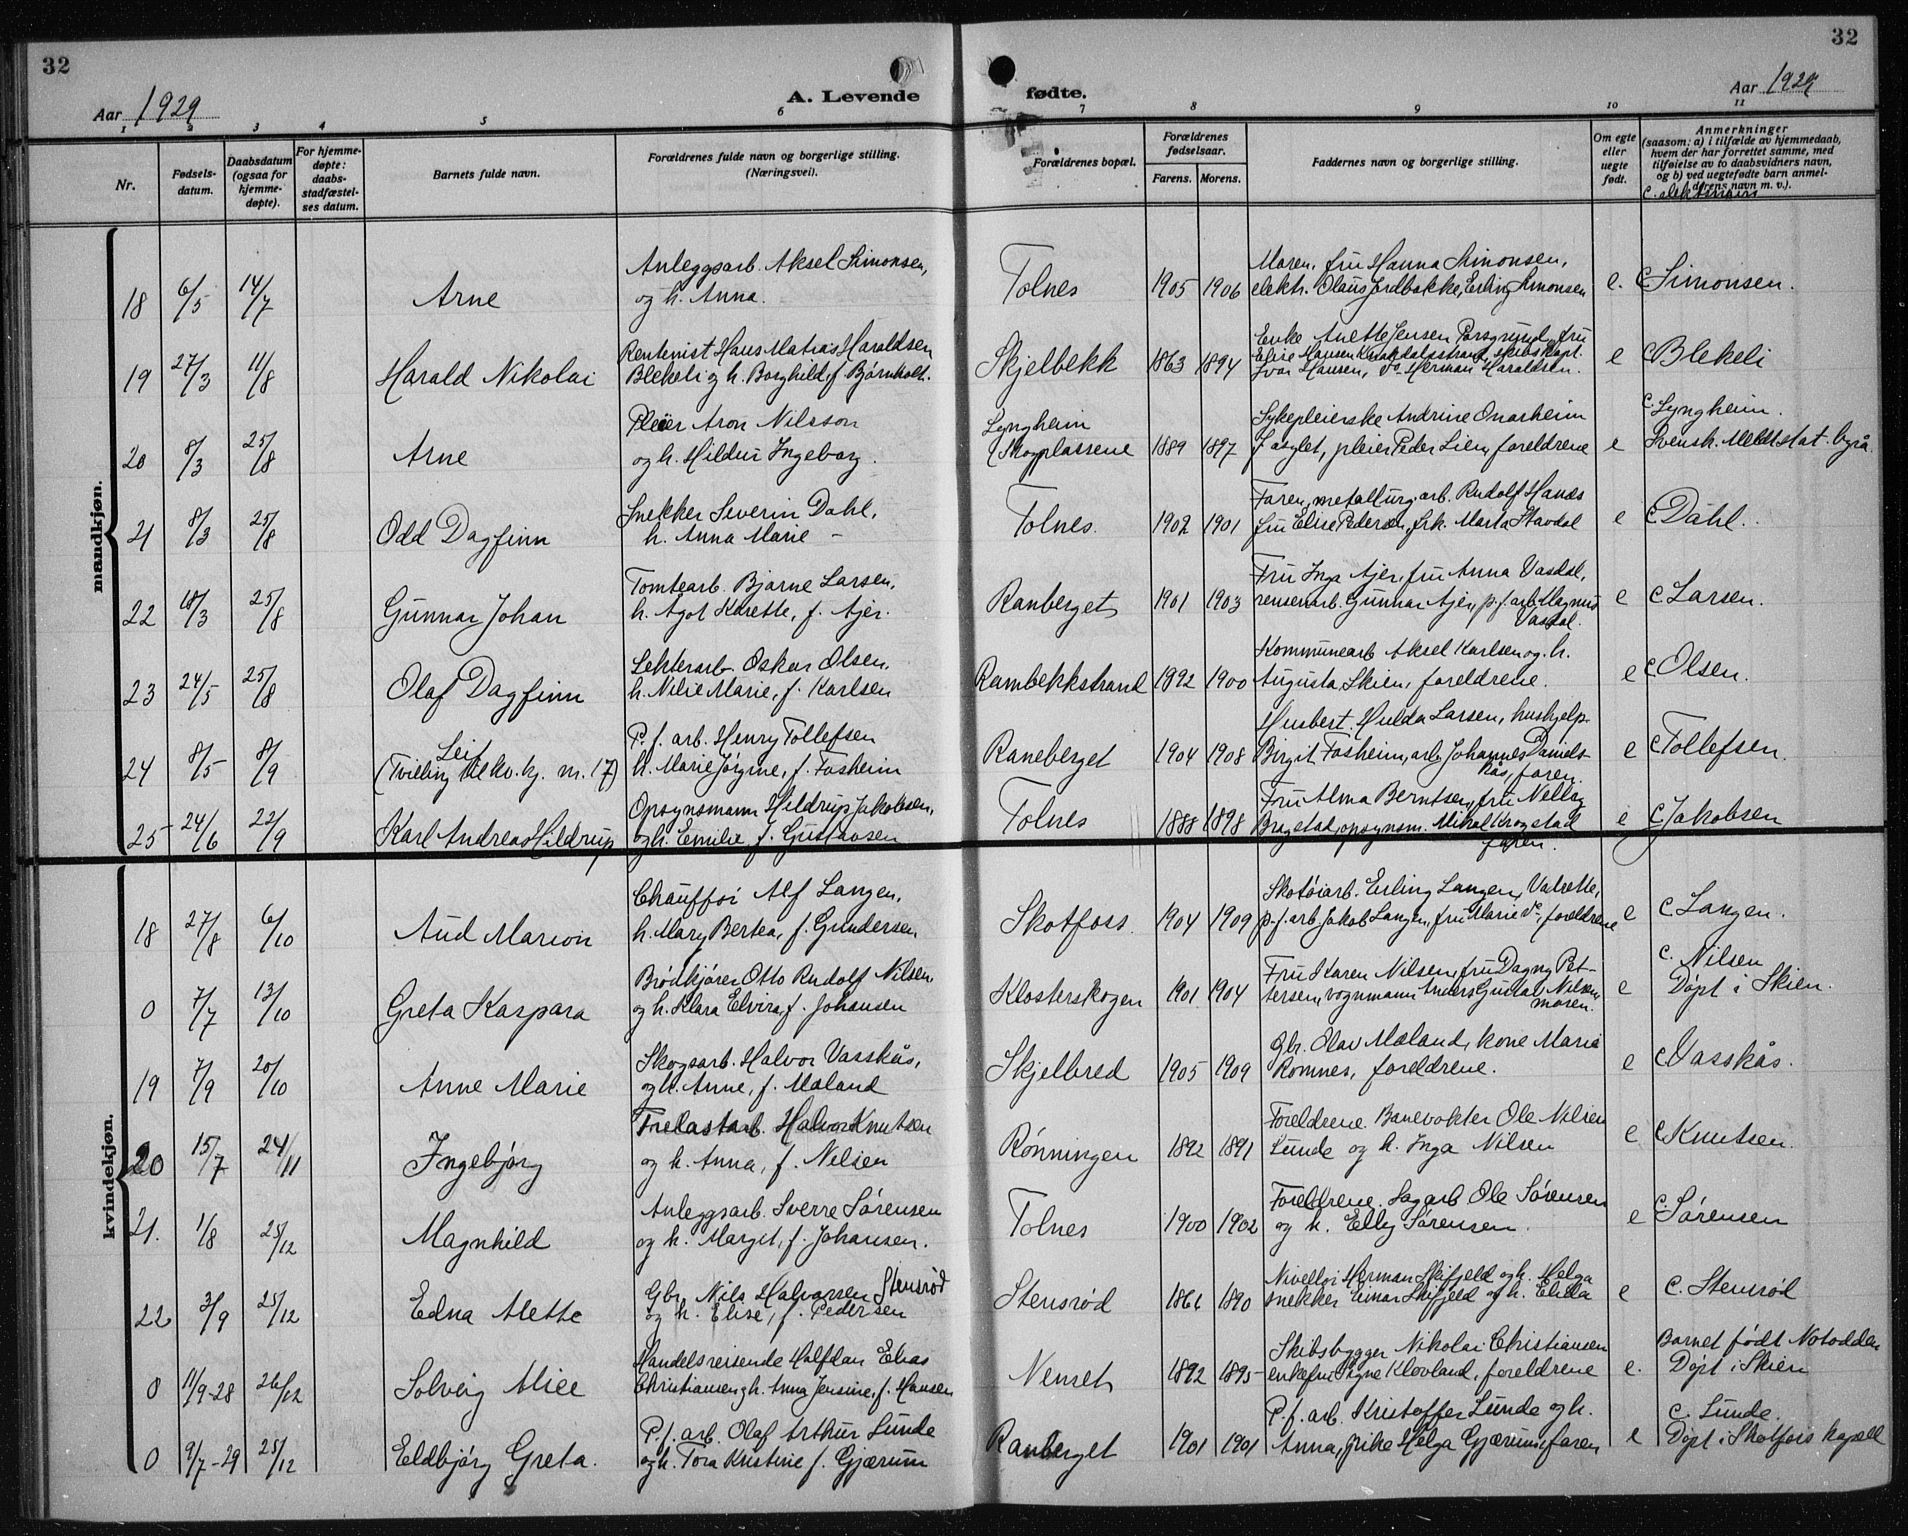 32
32
Aar 1929
A. Levende fødte.
Aar 1929
1 2 3 4 5 6 7 8 9 10 11
Nr.
Fødsels-
datum.
Daabsdatum
(ogsaa for
hjemme-
døpte).
For hjemme-
døpte:
daabs-
stadfæstel-
ses datum.
Barnets fulde navn.
Forældrenes fulde navn og borgerlige stilling.
(Næringsvei).
Forældrenes bopæl.
Forældrenes
fødselsaar.
Farens. Morens.
Faddernes navn og borgerlige stilling.
Om egte
eller
uegte
født.
Anmerkninger
(saasom: a) i tilfælde av hjemmedaab,
hvem der har forrettet samme, med
tilføielse av to daabsvidners navn,
og b) ved uegtefødte barn anmel-
derens navn m. v.).
mandkjøn.
Anleggsarb. Aksel Simonsen, Moren, fru Hanna Simonsen,
18 6/5 14/7 Arne og h. Anna. Tolnes 1905 1906 elektr. Olaus Jordbakke, Erling Simonsen e. C Simonsen.
Rentenist Hans Matias Haraldsen Enke Anette Jensen Porsgrund, fru
19 27/3 11/8 Harald Nikolai Blekeli og h. Borghild, f. Bjørnholt. Skjelbekk 1863 1894 Elise Hansen Knardalsstrand, skibskapt. e C Blekeli
Ivar Hansen, do Herman Haraldsen.
Pleier Aron Nilsson Lyngheim Sykepleierske Andrine Onarheim C. Lyngheim.
20 8/3 25/8 Arne og h. Hildur Ingeborg. Skogplassene 1889 1897 f asylet, pleier Peder Lien, foreldrene e Svensk. Meldt stat. byrå
Snekker Severin Dahl, Faren, metallurg. arb. Rudolf Hanås
21 8/3 25/8 Odd Dagfinn h. Anna Marie - Tolnes. 1902 1901 fru Elise Pedersen, frk. Marta Stavdal e C Dahl.
Tomtearb. Bjarne Larsen, Fru Inga Ajer, fru Anna Vasdal,
22 18/3 25/8 Gunnar Johan h. Agot Karette, f. Ajer. Ranberget 1901 1903 renseriarb. Gunnar Ajer, p.f. arb. Magnus e C Larsen.
Vasdal.
Lekterarb. Oskar Olsen, Kommunearb Aksel Karlsen og h.
23 24/5 25/8 Olaf Dagfinn h. Nilie Marie, f. Karlsen Rambekkstrand 1892 1900 Augusta, Skien, foreldrene. e C Olsen.
Leif P.f. arb. Henry Tollefsen Husbest. Hulda Larsen, hushjelp
24 8/5 8/9 (Tvilling til kv.kj. nr. 17) h. Marie Jørgine, f. Fosheim Raneberget 1904 1908 Birgit Fosheim, arb. Johannes Daniels- e C Tollefsen.
kås, faren.
Opsynsmann Hildrup Jakobsen, Fru Alma Berntsen, fru Nelly
25 24/6 22/9 Karl Andreas Hildrup og h. Emilie f. Gustavsen Tolnes 1888 1898 opsynsm. Mikal Krogstad e C Jakobsen
faren.
kvindekjøn.
Chauffør Alf Langen, Skotøiarb. Erling Langen, Valrette,
18 27/8 6/10 Aud Marion h. Mary Bertea, f. Gundersen Skotfoss 1904 1909 p.f. arb Jakob Langen, fru Marie do, foreldrene e C Langen.
Brødkjører Otto Rudolf Nilsen Fru Karen Nilsen, fru Dagny Pet- C. Nilsen
0 7/7 13/10 Greta Kaspara og h. Klara Elvira, f. Johansen Klosterskogen 1901 1904 tersen, vognmann Anders Gustav Nilsen, e Døpt i Skien.
moren.
Skogsarb. Halvor Vasskås, Gbr. Olav Mæland, kone Marie
19 7/9 20/10 Anne Marie og h. Anne, f. Mæland Skjelbred 1905 1909 Romnes, foreldrene. e C Vasskås.
Trelastarb. Halvor Knutsen Foreldrene Banevokter Ole Nilsen
20 15/7 24/11 Ingebjørg og h. Anna, f. Nilsen Rønningen 1892 1891 Lunde og h. Inga Nilsen e C Knutsen.
Anleggsarb. Sverre Sørensen Foreldrene, Sagarb Ole Sørensen
21. 1/8 25/12 Magnhild og h. Margit, f. Johansen. Tolnes 1900 1902 og h. Elly Sørensen. e C. Sørensen
Gbr. Nils Halvorsen Stensrød Nivellør Herman Skifjeld og h. Helga
22 3/9 25/12 Edna Alette og h. Elise, f. Pedersen Stensrød 1890 snekker Einar Skifjeld og h. Elida e C. Stensrød
Handelsreisende Halfdan Elias Skibsbygger Nikolai Christiansen Barnet født Notodden
0 11/9-28 26/12 Solveig Alice Christiansen og h. Anna Jensine, f. Hansen Nenset 1892 1895 enkefru Signe Klovland, foreldrene e. Døpt i Skien
P.f. arb. Olaf Arthur Lunde P.f. arb. Kristoffer Lunde og h. C. Lunde.
0 9/7-29 25/12 Eldbjørg Greta. og h. Tora Kristine f. Gjærum Ranberget 1901 1901 Anna, pike Helga Gjærum, faren e Døpt i Skotfoss kapell